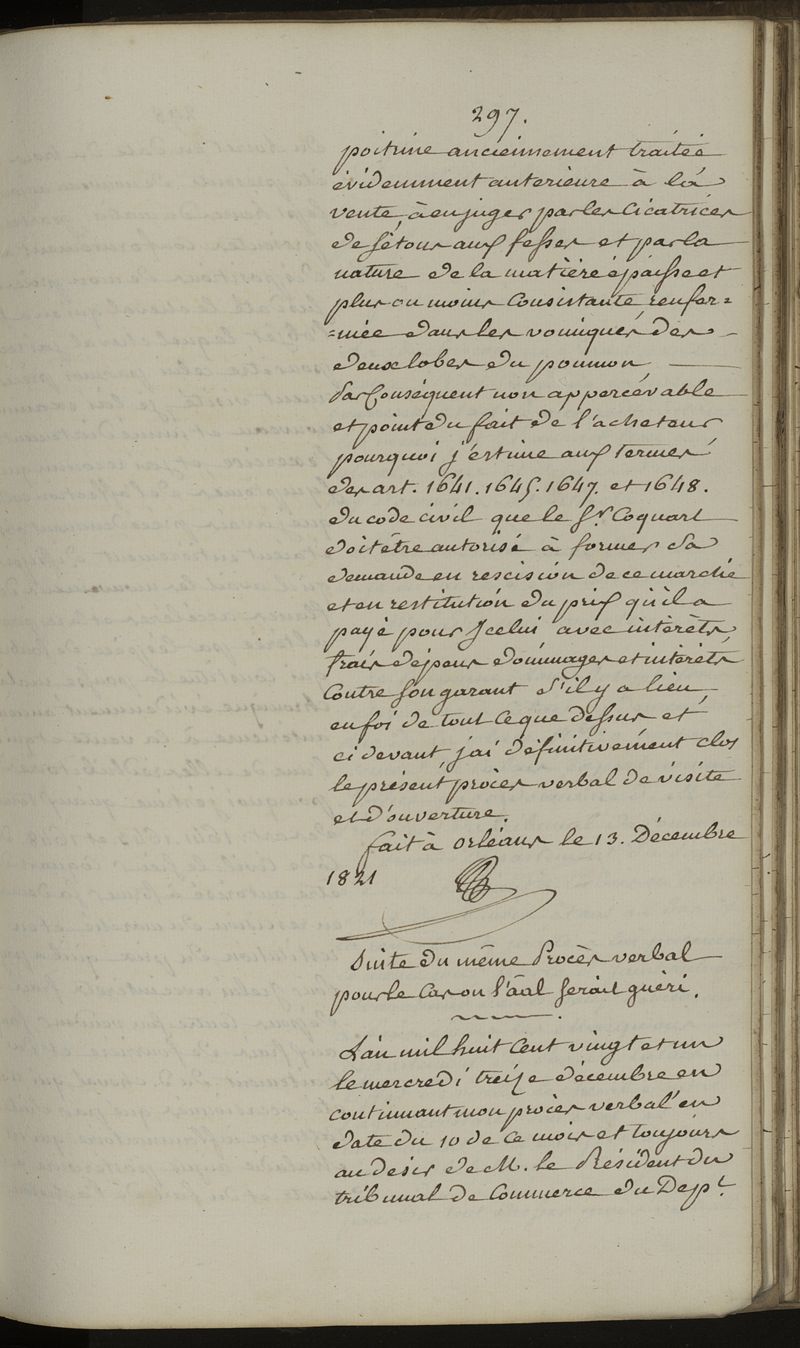 297.
poitrine anciennement traitée
évidemment anterieure à la
vente, à en juger par les Cicatrices
de sétons aux fesses et par la
nature de la matière épaisse et
plus ou moins Consistante, renfer=
=mée dans les vomiques des
deux lobes du poumon,
Par Conséquent non appercévable
et point du fait de l'acheteur
pourquoi j'estime aux termes
des art. 1641. 1645. 1647. et 1648.
du code civil que le Sr. Coquart
doit être autorisé à former sa
demande en rescision de ce marché
et en restitution du prix qu'il a
payé pour Jcelui avec intérèts,
frais dépens dommages et intérèts
Contre son garant s'il y a lieu,
en foi de tout ce que dessus et
ci devant j'ai définitivement clos
le présent procès verbal de visite
et d'ouverture.
fait à orléans le 13. Décembre
1821
Suite du même Procès verbal
pour le Cas ou l'aal serait guèri.
L'an mil huit Cent vingt et un
le mercredi treize décembre en
continuant mon procès verbal en
date du 10 de ce mois et toujours
au desir de M. le Président du
tribunal de Commerce du Dept.